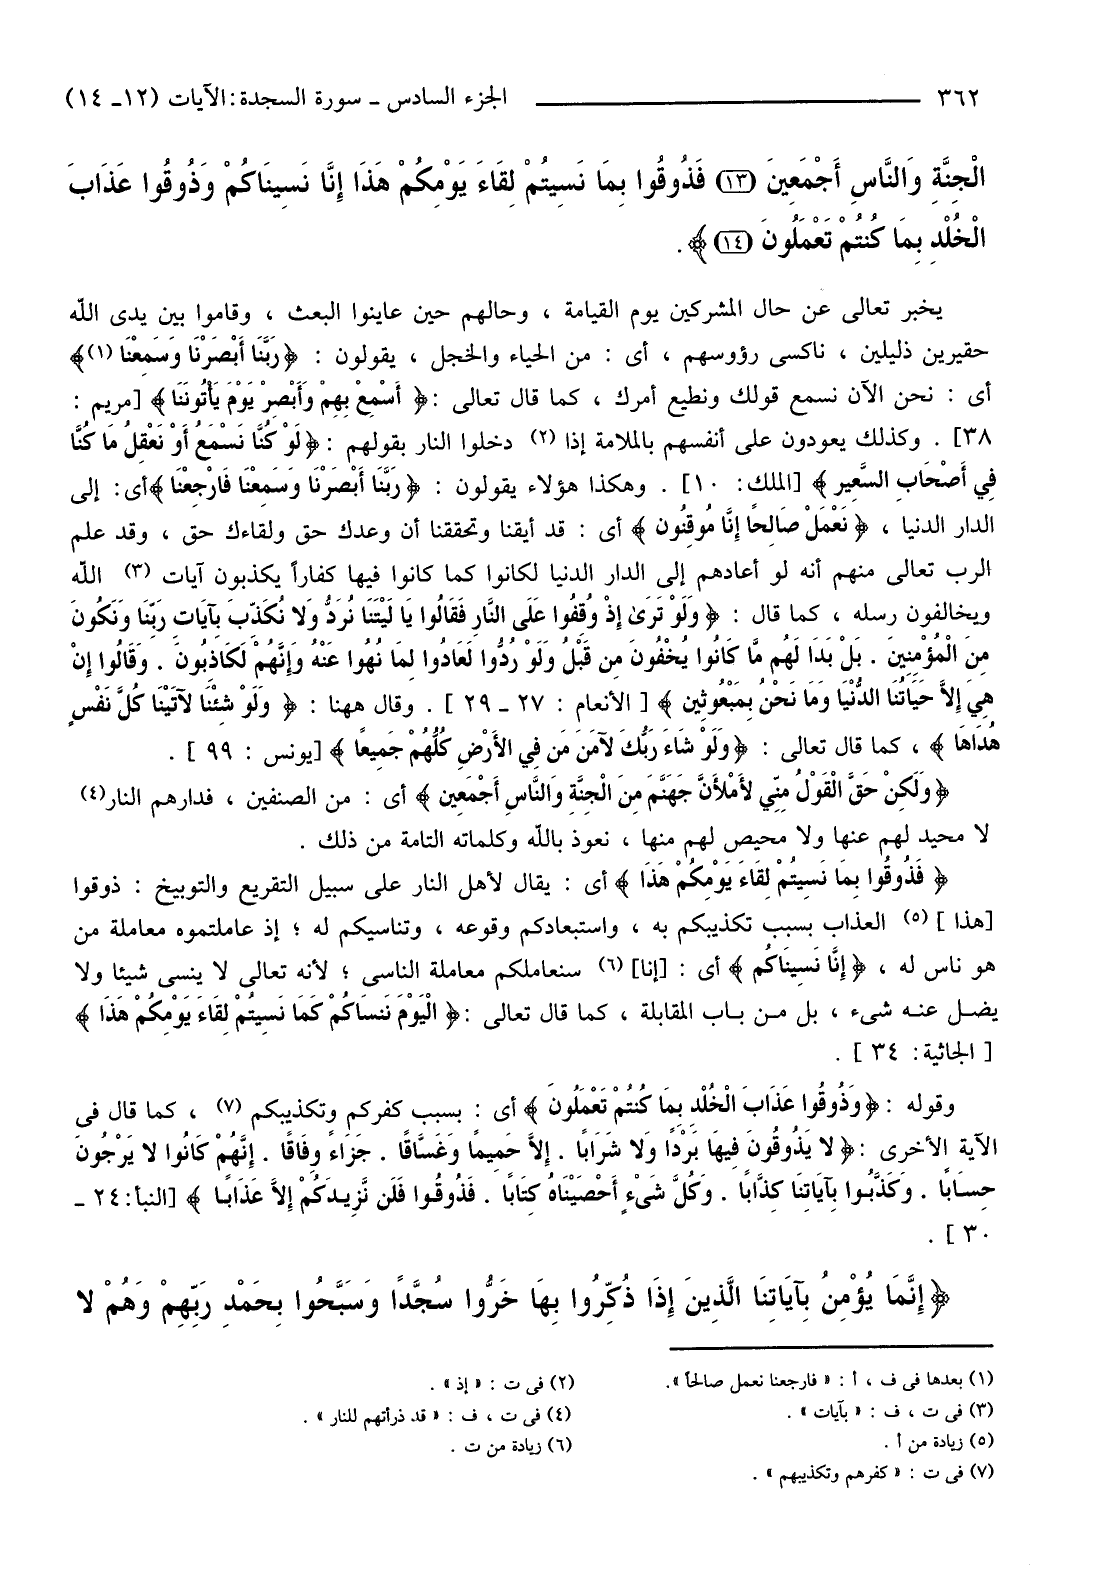 ٣٦٢ الجزء السادس - سورة السجدة: الآيات (١٢- ١٤)
الْجِنَّةِ وَالنَّاسِ أَجْمَعِينَ (١٣) فَذُوقُوا بِمَا نَسِيتُمْ لِقَاءَ يَوْمِكُمْ هَذَا إِنَّا نَسِينَاكُمْ وَذُوقُوا عَذَابَ
الْخُلْدِ بِمَا كُنتُمْ تَعْمَلُونَ (١٤) ﴾ .
يخبر تعالى عن حال المشركين يوم القيامة ، وحالهم حين عاينوا البعث ، وقاموا بين يدى اللّه
حقيرين ذليلين ، ناكسى رؤوسهم ، أى : من الحياء والخجل ، يقولون : ﴿ رَبَّنَا أَبْصَرْنَا وَسَمِعْنَا (١)﴾
أى : نحن الآن نسمع قولك ونطيع أمرك ، كما قال تعالى :﴿ أَسْمِعْ بِهِمْ وَأَبْصِرْ يَوْمَ يَأْتُونَنَا ﴾ [مريم :
٣٨] . وكذلك يعودون على أنفسهم بالملامة إذا (٢) دخلوا النار بقولهم :﴿ لَوْ كُنَّا نَسْمَعُ أَوْ نَعْقِلُ مَا كُنَّا
فِي أَصْحَابِ السَّعِيرِ ﴾ [الملك: ١٠] . وهكذا هؤلاء يقولون : ﴿ رَبَّنَا أَبْصَرْنَا وَسَمِعْنَا فَارْجِعْنَا ﴾أى: إلى
الدار الدنيا ، ﴿ نَعْمَلْ صَالِحًا إِنَّا مُوقِنُون ﴾ أى : قد أيقنا وتحققنا أن وعدك حق ولقاءك حق ، وقد علم
الرب تعالى منهم أنه لو أعادهم إلى الدار الدنيا لكانوا كما كانوا فيها كفاراً يكذبون آيات (٣) اللّه
ويخالفون رسله ، كما قال : ﴿ وَلَوْ تَرَىٰ إِذْ وُقِفُوا عَلَى النَّارِ فَقَالُوا يَا لَيْتَنَا نُرَدُّ وَلا نُكَذِّبَ بِآيَاتِ رَبِّنَا وَنَكُونَ
مِنَ الْمُؤْمِنِينَ . بَلْ بَدَا لَهُم مَّا كَانُوا يُخْفُونَ مِن قَبْلُ وَلَوْ رُدُّوا لَعَادُوا لِمَا نُهُوا عَنْهُ وَإِنَّهُمْ لَكَاذِبُونَ . وَقَالُوا إِنْ
هِيَ إِلاَّ حَيَاتُنَا الدُّنْيَا وَمَا نَحْنُ بِمَبْعُوثِين ﴾ [ الأنعام : ٢٧ - ٢٩ ] . وقال ههنا : ﴿ وَلَوْ شِئْنَا لآتَيْنَا كُلَّ نَفْسٍ
هُدَاهَا ﴾ ، كما قال تعالى : ﴿ وَلَوْ شَاءَ رَبُّكَ لآمَنَ مَن فِي الأَرْضِ كُلُّهُمْ جَمِيعًا ﴾ [يونس : ٩٩ ] .
﴿ وَلَكِنْ حَقَّ الْقَوْلُ مِنِّي لأَمْلأَنَّ جَهَنَّمَ مِنَ الْجِنَّةِ وَالنَّاسِ أَجْمَعِين ﴾ أى : من الصنفين ، فدارهم النار(٤)
لا محيد لهم عنها ولا محيص لهم منها ، نعوذ باللّه وكلماته التامة من ذلك .
﴿ فَذُوقُوا بِمَا نَسِيتُمْ لِقَاءَ يَوْمِكُمْ هَذَا ﴾ أى : يقال لأهل النار على سبيل التقريع والتوبيخ : ذوقوا
[هذا ] (٥) العذاب بسبب تكذيبكم به ، واستبعادكم وقوعه ، وتناسيكم له ؛ إذ عاملتموه معاملة من
هو ناس له ، ﴿ إِنَّا نَسِينَاكُم ﴾ أى : [إنا] (٦) سنعاملكم معاملة الناسى ؛ لأنه تعالى لا ينسى شيئا ولا
يضل عنه شىء ، بل من باب المقابلة ، كما قال تعالى :﴿ الْيَوْمَ نَنسَاكُمْ كَمَا نَسِيتُمْ لِقَاءَ يَوْمِكُمْ هَذَا ﴾
[ الجاثية: ٣٤ ] .
وقوله :﴿ وَذُوقُوا عَذَابَ الْخُلْدِ بِمَا كُنتُمْ تَعْمَلُونَ ﴾ أى : بسبب كفركم وتكذيبكم (٧) ، كما قال فى
الآية الأخرى :﴿ لا يَذُوقُونَ فِيهَا بَرْدًا وَلا شَرَابًا . إِلاَّ حَمِيمًا وَغَسَّاقًا . جَزَاءً وِفَاقًا . إِنَّهُمْ كَانُوا لا يَرْجُونَ
حِسَابًا . وَكَذَّبُوا بِآيَاتِنَا كِذَّابًا . وَكُلَّ شَيْءٍ أَحْصَيْنَاهُ كِتَابًا . فَذُوقُوا فَلَن نَّزِيدَكُمْ إِلاَّ عَذَابًا ﴾ [النبأ:٢٤ -
٣٠ ] .
﴿ إِنَّمَا يُؤْمِنُ بِآيَاتِنَا الَّذِينَ إِذَا ذُكِّرُوا بِهَا خَرُّوا سُجَّدًا وَسَبَّحُوا بِحَمْدِ رَبِّهِمْ وَهُمْ لا
(١) بعدها فى ف ، أ : « فارجعنا نعمل صالحاً ».
(٢) فى ت : « إذ » .
(٣) فى ت ، ف : « بآيات » .
(٤) فى ت ، ف : « قد ذرأتهم للنار » .
(٥) زيادة من أ .
(٦) زيادة من ت .
(٧) فى ت : « كفرهم وتكذيبهم » .